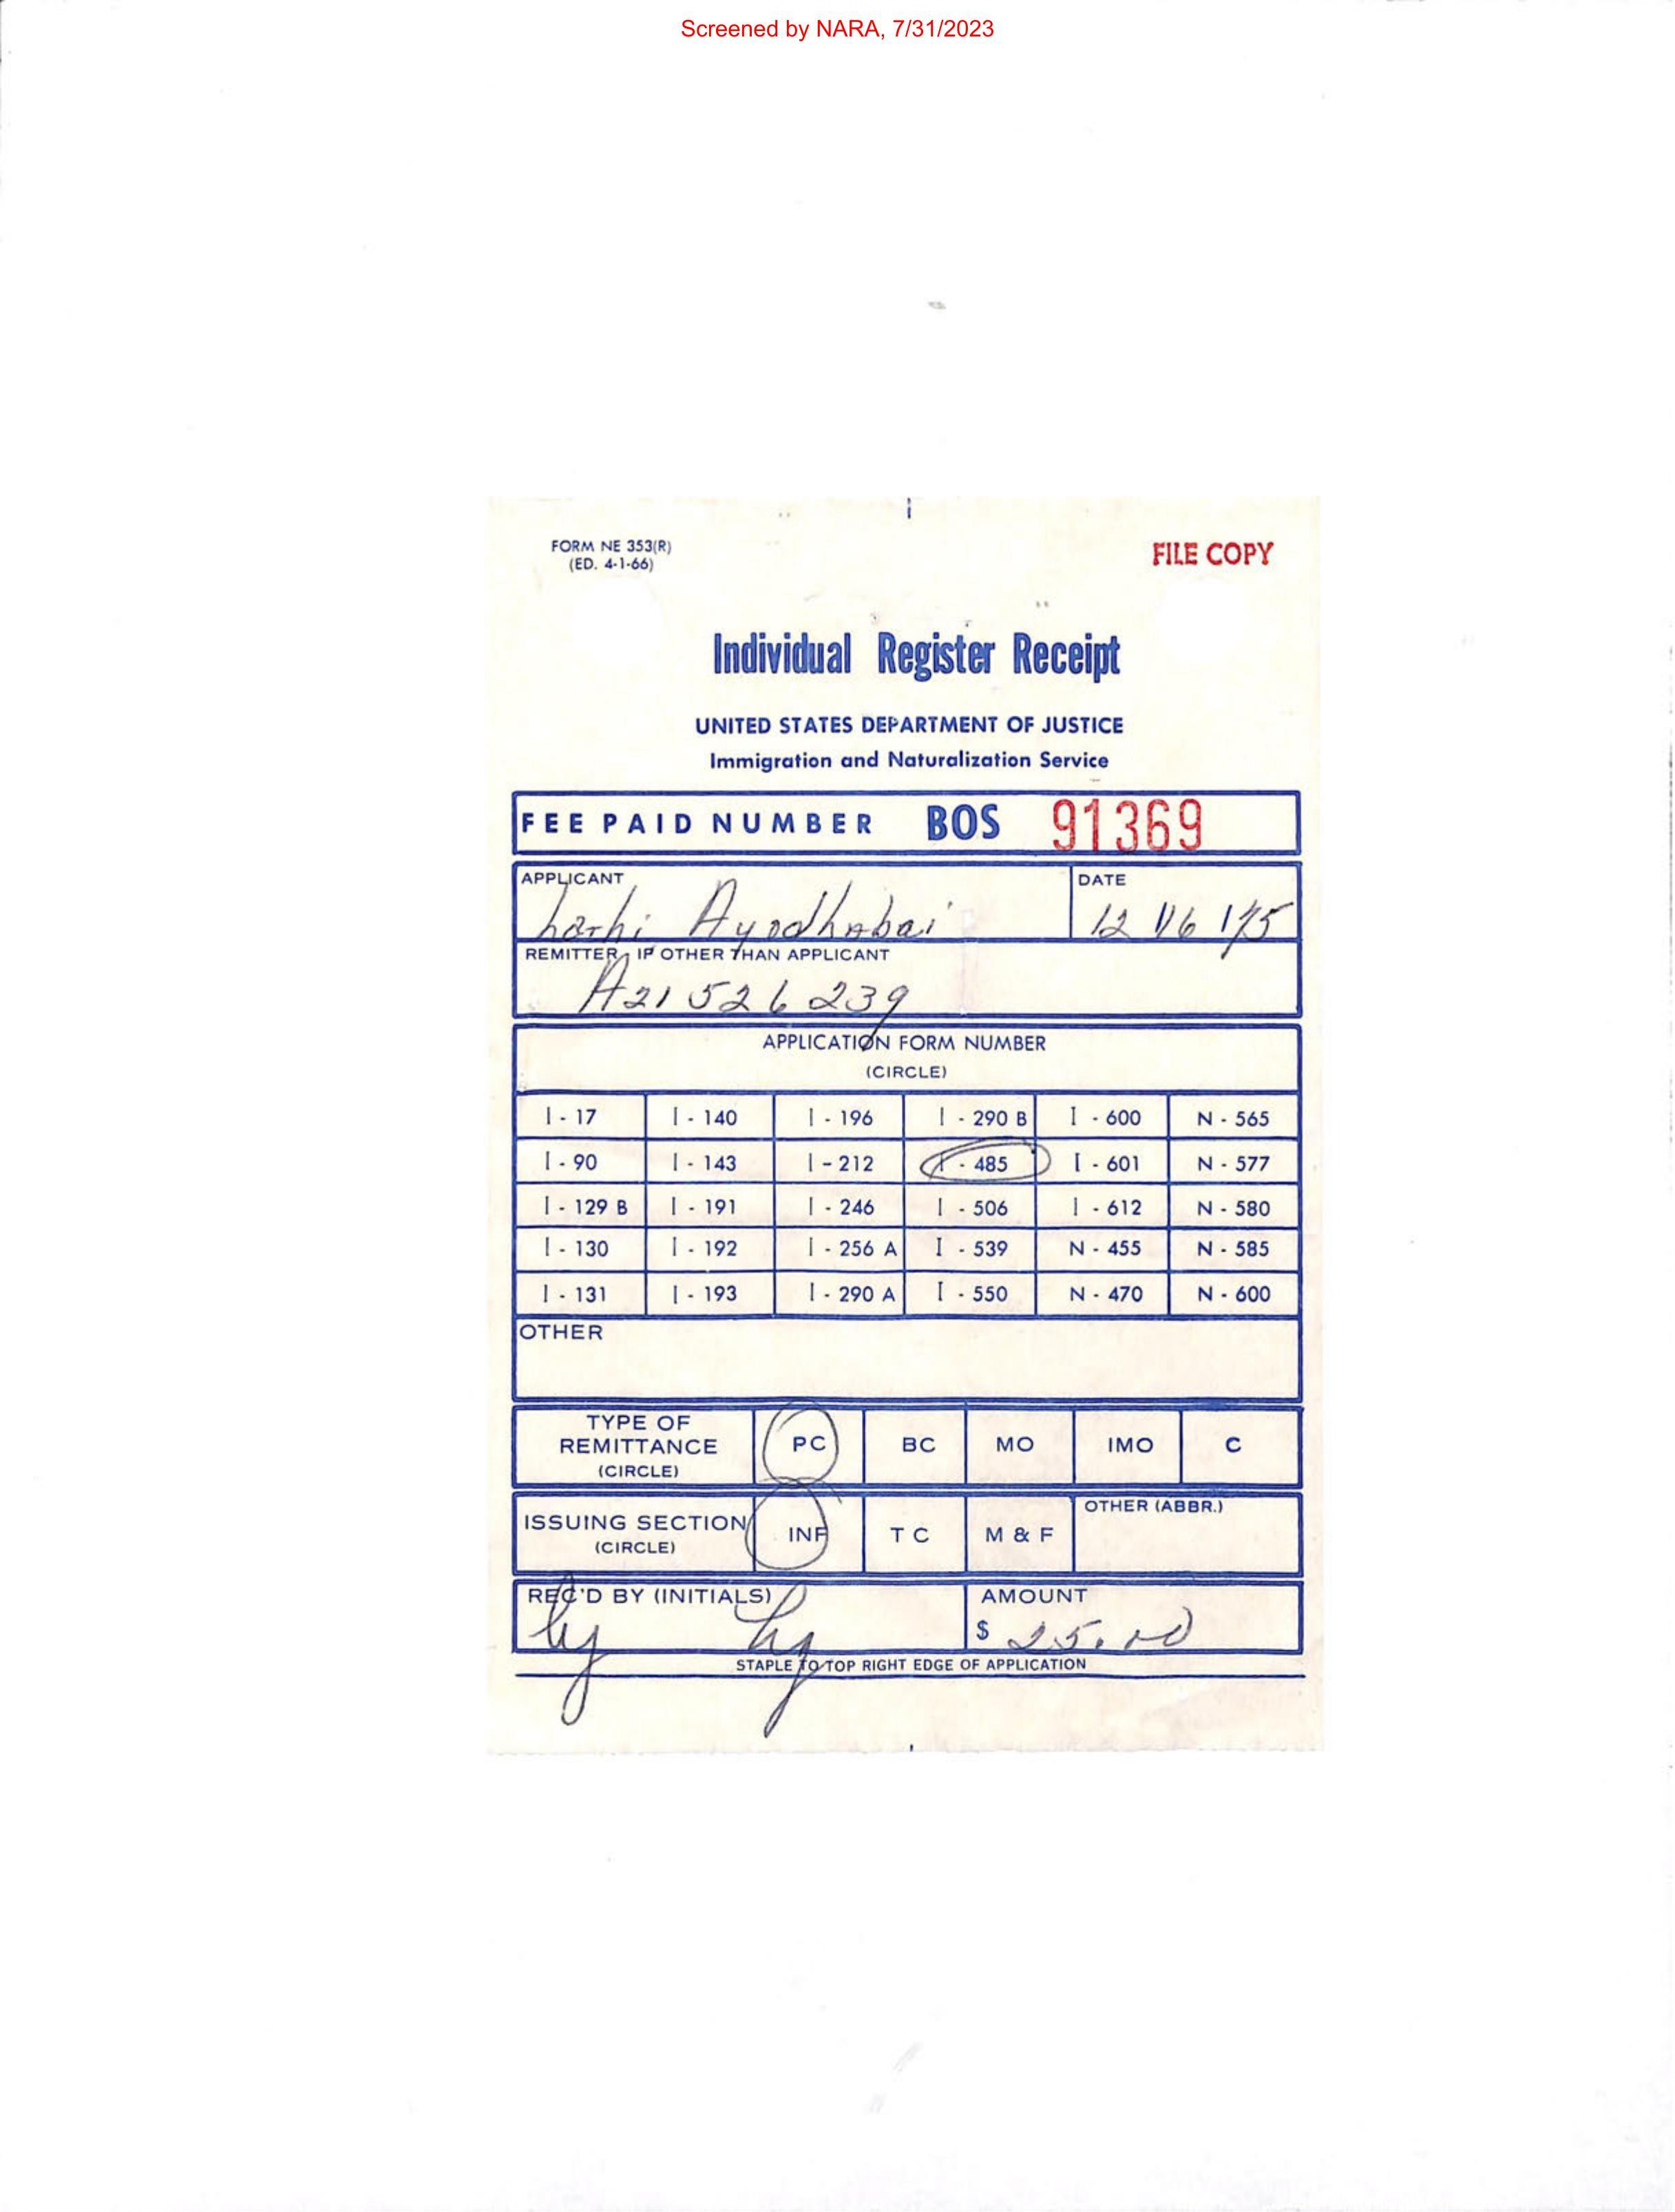 Screened by NARA, 7/31/2023
FORM NE 353(R)
(ED. 4-1-66)
FILE COPY
Individual Register Receipt
UNITED STATES DEPARTMENT OF JUSTICE
Immigration and Naturalization Service
FEE PAID NUMBER BOS 91369
APPLICANT DATE
Ayodhabai 12/16/75
REMITTER, IF OTHER THAN APPLICANT
A21 526 239
APPLICATION FORM NUMBER
(CIRCLE)
I - 17 I - 140 I - 196 I - 290 B I - 600 N - 565
I - 90 I - 143 I - 212 I - 485 I - 601 N - 577
I - 129 B I - 191 I - 246 I - 506 I - 612 N - 580
I - 130 I - 192 I - 256 A I - 539 N - 455 N - 585
I - 131 I - 193 I - 290 A I - 550 N - 470 N - 600
OTHER
TYPE OF
REMITTANCE
(CIRCLE)
PC BC MO IMO C
ISSUING SECTION
(CIRCLE)
INF T C M & F OTHER (ABBR.)
REC'D BY (INITIALS) AMOUNT
$ 25.00
STAPLE TO TOP RIGHT EDGE OF APPLICATION